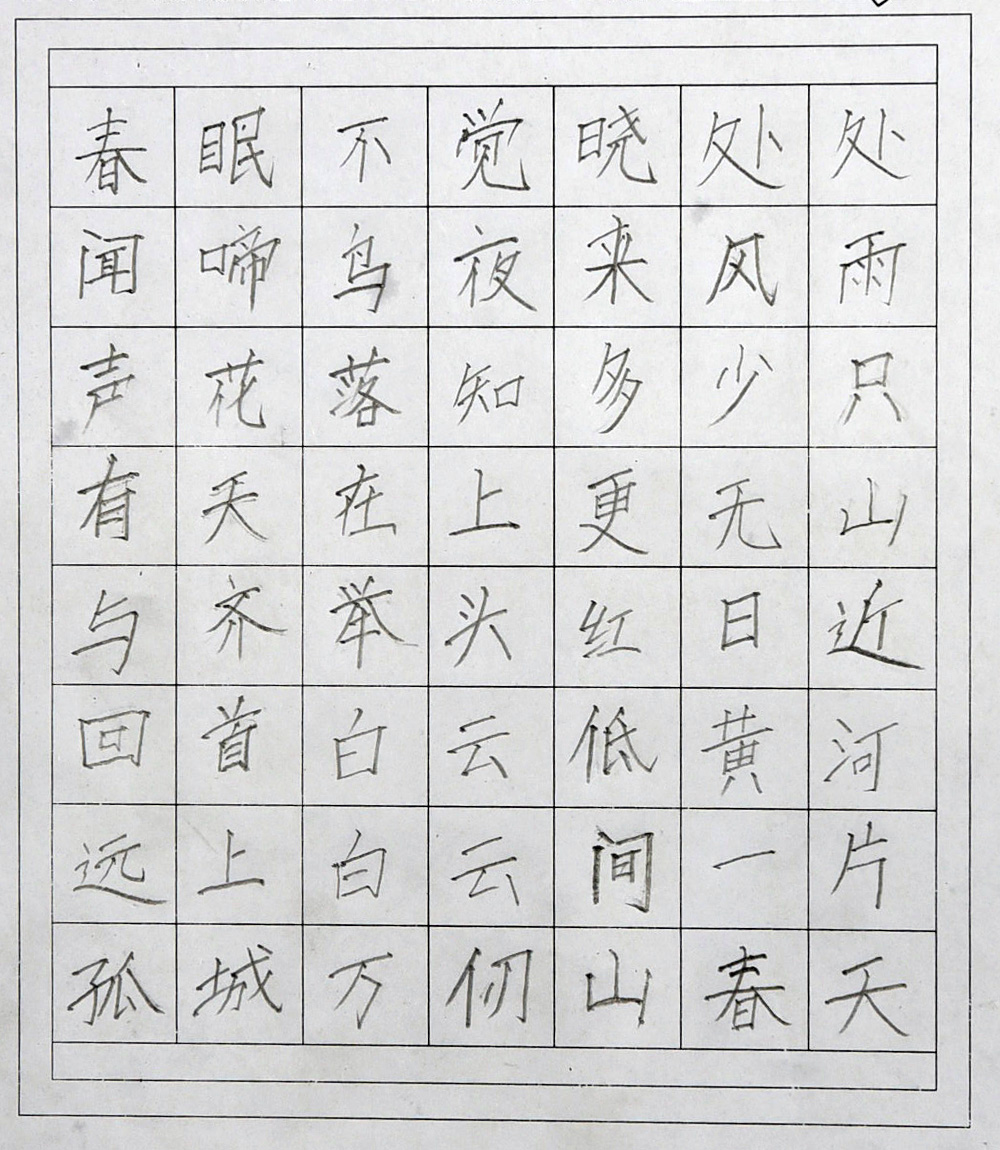 春眠不觉晓处处
闻啼鸟夜来风雨
声花落知多少只
有天在上更无山
与齐举头红日近
回首白云低黄河
远上白云间一片
孤城万仞山春天